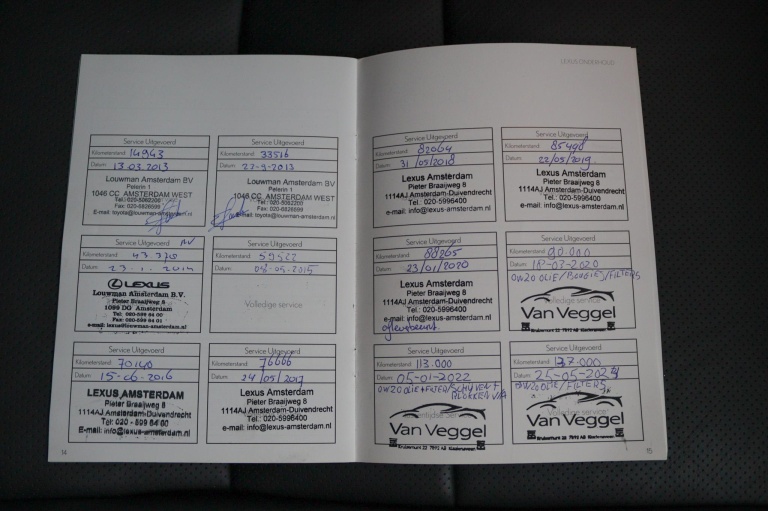 LEXUS ONDERHOUD
Service Uitgevoerd
Kilometerstand 14943
Datum 13-03-2013
Louwman Amsterdam BV
Pieterin 1
1046 CC AMSTERDAM WEST
Tel.: 020-5062200
Fax: 020-6826699
E-mail: toyota@louwman-amsterdam.nl
Service Uitgevoerd
Kilometerstand 33516
Datum 27-9-2013
Louwman Amsterdam BV
1046 CC AMSTERDAM WEST
Tel.: 020-5062200
Fax: 020-6826699
E-mail: toyota@louwman-amsterdam.nl
Service Uitgevoerd
Kilometerstand 43.370
Datum
LEXUS
Louwman Amsterdam B.V.
Pieter Braaijweg 8
1099 DG Amsterdam
e-mail: lexus@louwman-amsterdam.nl
Service Uitgevoerd
Kilometerstand 59522
Datum 08-05-2015
Volledige service
Service Uitgevoerd
Kilometerstand 70140
Datum 15-06-2016
LEXUS AMSTERDAM
Pieter Braaijweg 8
1114 AJ Amsterdam-Duivendrecht
Tel: 020 - 599 64 00
E-mail: info@lexus-amsterdam.nl
Service Uitgevoerd
Kilometerstand 76666
Datum 24/05/2017
Lexus Amsterdam
Pieter Braaijweg 8
1114AJ Amsterdam-Duivendrecht
Tel.: 020-5996400
e-mail: info@lexus-amsterdam.nl
14
Service Uitgevoerd
Kilometerstand 82064
Datum 31/05/2018
Lexus Amsterdam
Pieter Braaijweg 8
1114AJ Amsterdam-Duivendrecht
Tel.: 020-5996400
e-mail: info@lexus-amsterdam.nl
Service Uitgevoerd
Kilometerstand 85498
Datum 22/05/2019
Lexus Amsterdam
Pieter Braaijweg 8
1114AJ Amsterdam-Duivendrecht
Tel.: 020-5996400
e-mail: info@lexus-amsterdam.nl
Service Uitgevoerd
Kilometerstand 88265
Datum 23/01/2020
Lexus Amsterdam
Pieter Braaijweg 8
1114AJ Amsterdam-Duivendrecht
Tel.: 020-5996400
e-mail: info@lexus-amsterdam.nl
Service Uitgevoerd
Kilometerstand 90.000
Datum 18-03-2020
0W20 OLIE/BOUGIES/FILTERS
Volledige service
Van Veggel
Service Uitgevoerd
Kilometerstand 113.000
Datum 05-01-2022
0W20 OLIE+FILTER/SCHIJVEN+
BLOKKEN V/A
Van Veggel
Service Uitgevoerd
Kilometerstand 127.000
Datum 25-05-2024
0W20 OLIE/FILTERS
Van Veggel
15